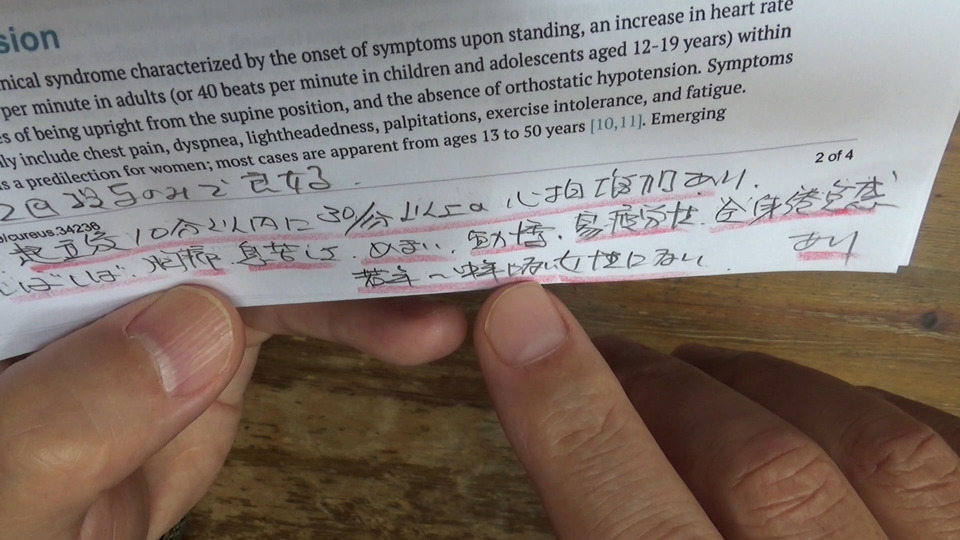 sion
nical syndrome characterized by the onset of symptoms upon standing, an increase in heart rate
per minute in adults (or 40 beats per minute in children and adolescents aged 12-19 years) within
s of being upright from the supine position, and the absence of orthostatic hypotension. Symptoms
ly include chest pain, dyspnea, lightheadedness, palpitations, exercise intolerance, and fatigue.
s a predilection for women; most cases are apparent from ages 13 to 50 years [10,11]. Emerging
2 of 4
2回投与のみで
/cureus.34236
起立後10分以内に30/分以上の心拍増加あり.
しばしば 胸痛 息苦しさ めまい 動悸. 易疲労性. 全身倦怠感
あり
若年〜中年に多い 女性に多い